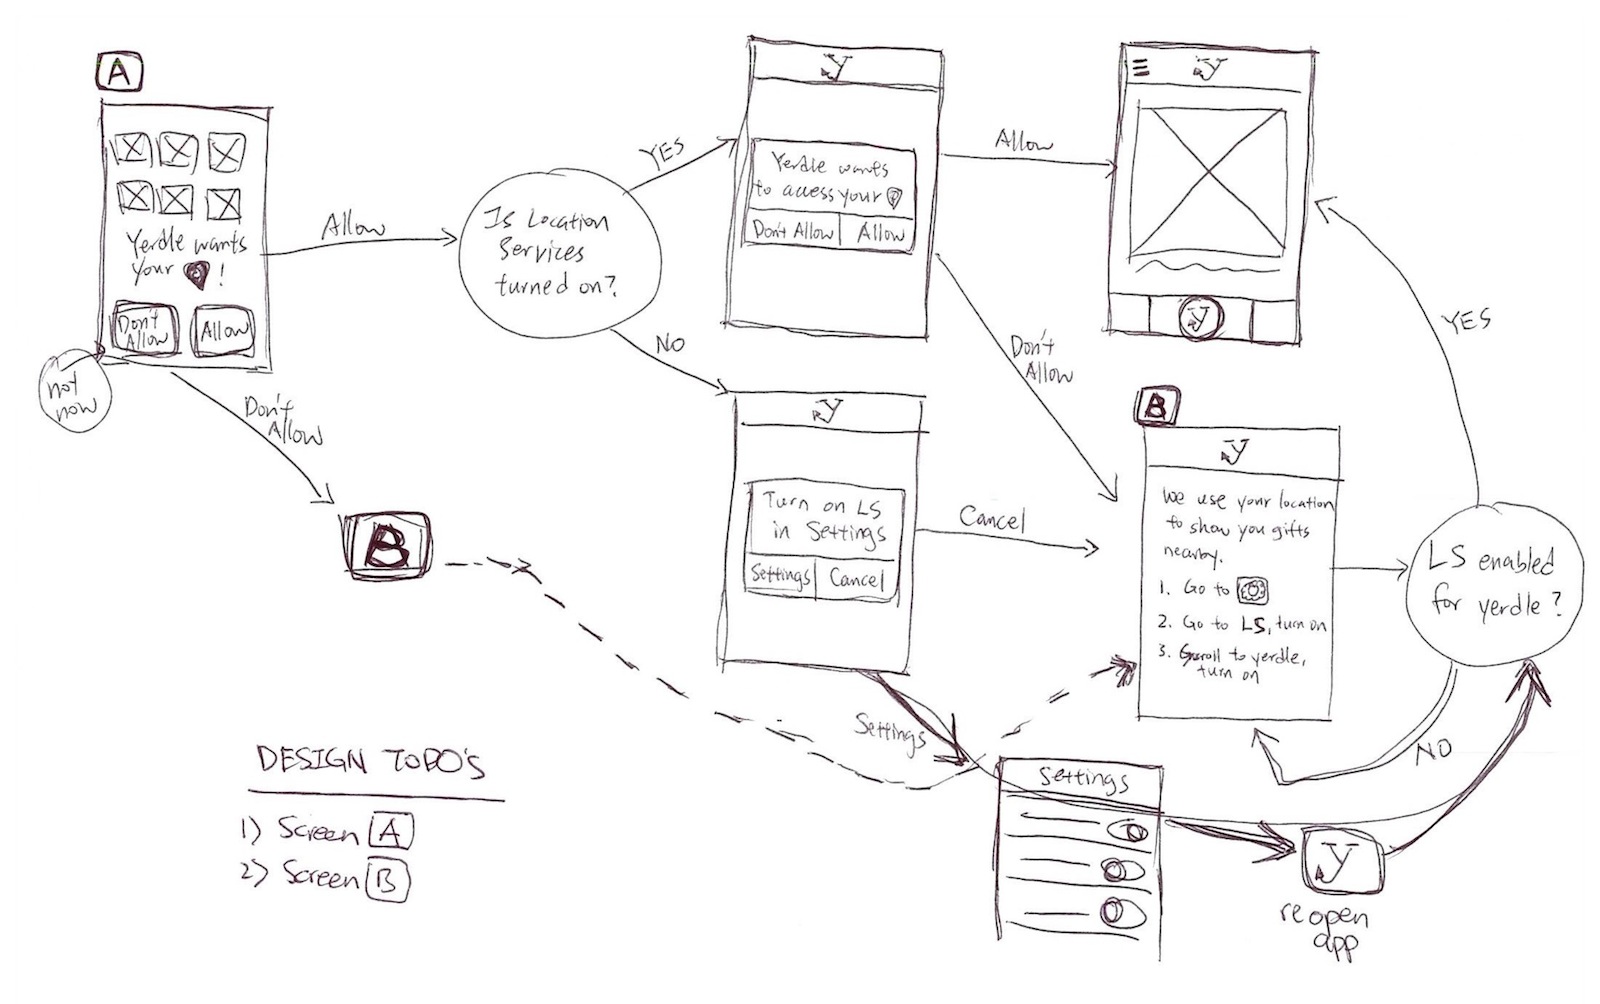 A
Yerdle wants
your !
Don't
Allow
Allow
not
now
Allow
Don't
Allow
B
Is Location
Services
turned on?
YES
NO
y
Yerdle wants
to access your
Don't Allow
Allow
Allow
Don't
Allow
y
y
y
Turn on LS
in Settings
Settings
Cancel
Cancel
Settings
B
y
We use your location
to show you gifts
nearby.
1. Go to
2. Go to LS, turn on
3. Scroll to yerdle,
turn on
LS enabled
for yerdle?
YES
NO
Settings
y
reopen
app
DESIGN TODO'S
1) Screen A
2) Screen B